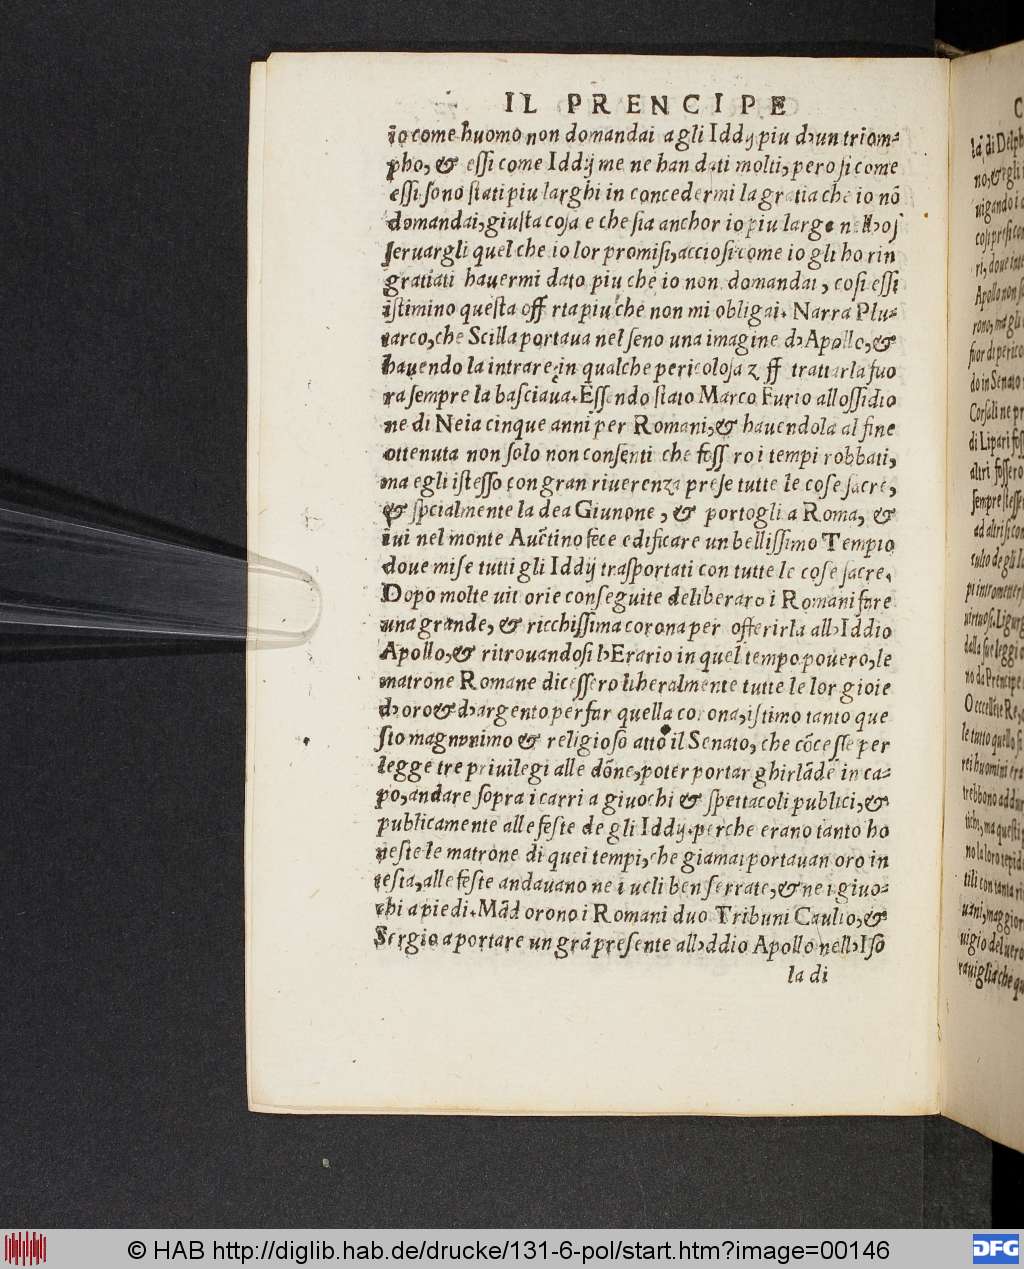 IL PRENCIPE
io come huomo non domandai a gli Iddij piu d'un triom-
pho, & essi come Iddij me ne han dati molti, pero si come
essi sono stati piu larghi in concedermi la gratia che io nō
domandai, giusta cosa e che sia anchor io piu largo nell'os
seruargli quel che io lor promisi, accio si come io gli ho rin
gratiati hauermi dato piu che io non domandai, cosi essi
istimino questa off ria piu che non mi obligai. Narra Plu-
tarco, che Scilla portaua nel seno una imagine d'Apollo, &
hauendo la intrare in qualche pericolosa z ff trattarla fuo
ra sempre la basciaua. Essendo stato Marco Furio all ossidio
ne di Neia cinque anni per Romani, & hauendola al fine
ottenuta non solo non consenti che foss ro i tempi robbati,
ma egli istesso con gran riuerenza prese tutte le cose sacre,
& spcialmente la dea Giunone, & portogli a Roma, &
iui nel monte Auētino fece edificare un bellissimo Tempio
doue mise tutti gli Iddij trasportati con tutte le cose sacre.
Dopo molte uit orie conseguite deliberaro i Romani fare
una grande, & ricchissima corona per offerirla all'Iddio
Apollo, & ritrouandosi l'Erario in quel tempo pouero, le
matrone Romane dicessero liberalmente tutte le lor gioie
d'oro & d'argento per far quella corona, istimo tanto que
sto magnanimo & religioso atto il Senato, che cōcesse per
legge tre priuilegi alle dōne, poter portar ghirlāde in ca-
po, andare sopra i carri a giuochi & spettacoli publici, &
publicamente alle feste de gli Iddij. perche erano tanto ho
neste le matrone di quei tempi, che giamai portauan oro in
testa, alle feste andauano ne i ueli ben serrate, & ne i giuo-
chi a piedi. Mād orono i Romani duo Tribuni Caulio, &
Sergio a portare un grā presente all'ddio Apollo nell'Iso
la di
la di Delph
no, & egli
uigando i
cosi presi con
ri, doue
Apollo non
rono, ma gli
fuor di perico
do in Senato
Corsali ne
di Lipari foss
altri fossero
sempre stesse
ad altri si con
culto de gli
uirtuosi. Ligurg
dalla sue leggi
no da Prencipe
O eccellēte Re,
le tutto quello
rei huomini era
trebbono addur
tichi, ma questi
no la loro tepid
tili con tanta ri
uani, maggior
uigio del uero
rauiglia che qu
© HAB http://diglib.hab.de/drucke/131-6-pol/start.htm?image=00146
DFG